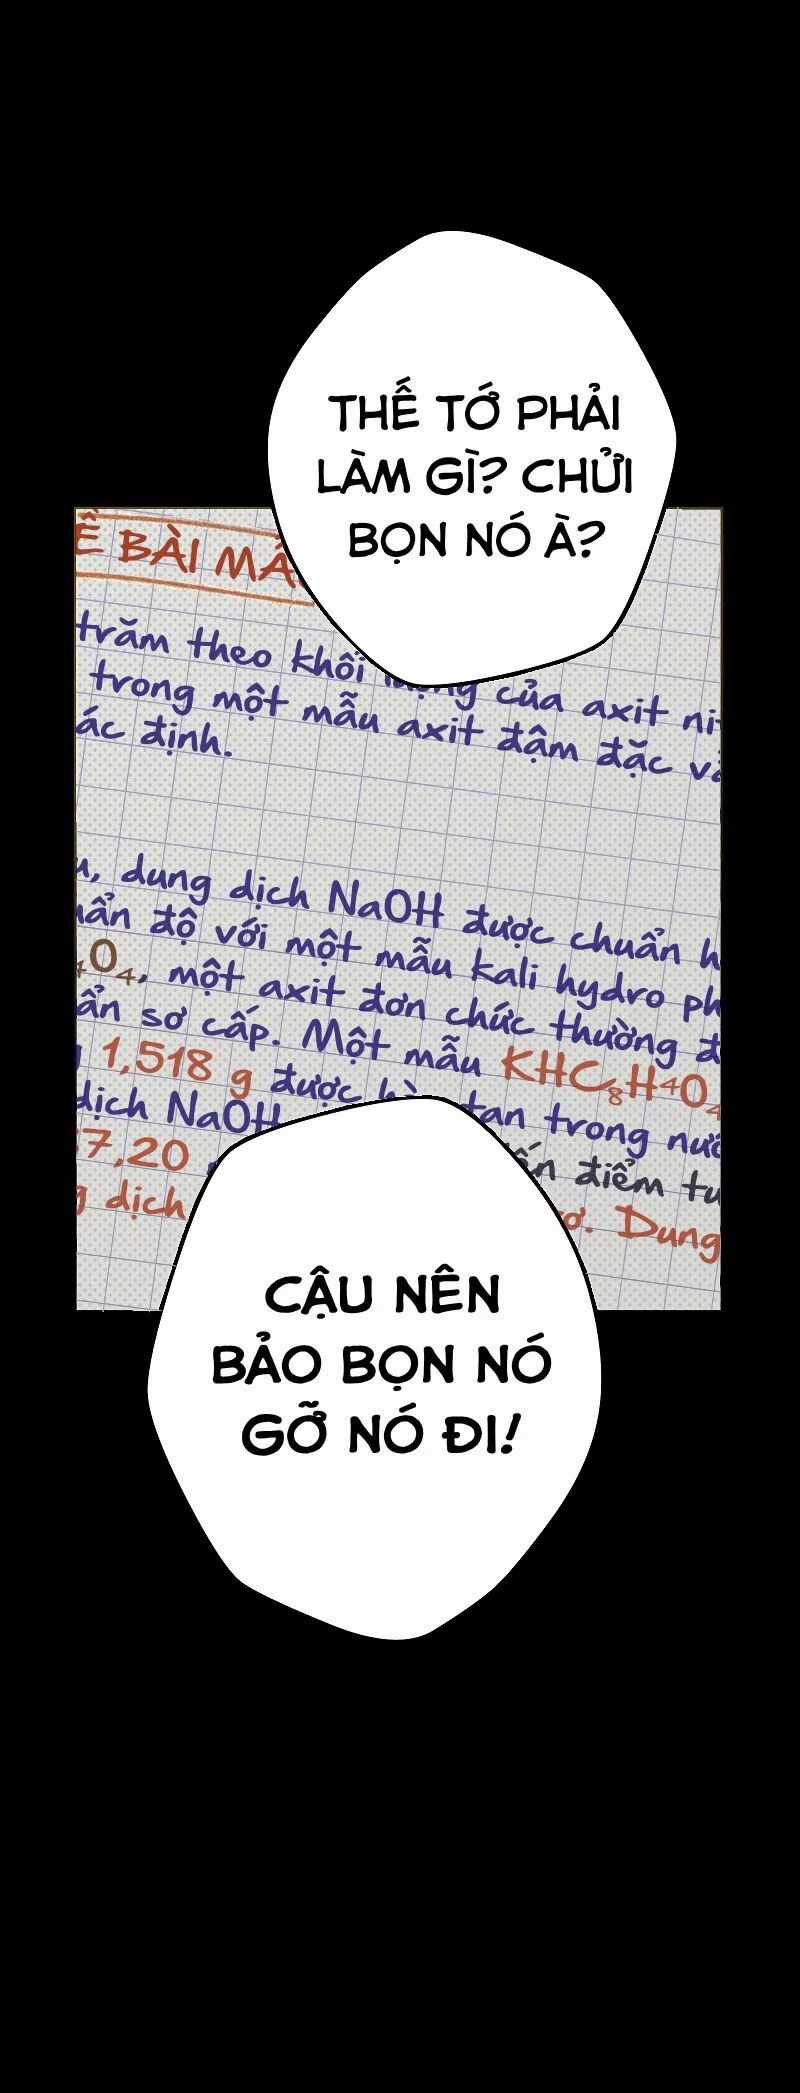 THẾ TỚ PHẢI
LÀM GÌ? CHỬI
BỌN NÓ À?
BÀI
trăm theo khối lượng của axit
trong một mẫu axit đậm đặc
định.
dung dịch NaOH được chuẩn
độ với một mẫu kali hydro
O₄, một axit đơn chức thường
sơ cấp. Một mẫu KHC₈H₄O₄
1,518 g được tan trong
dịch NaOH
7,20 điểm
dịch Dung
CẬU NÊN
BẢO BỌN NÓ
GỠ NÓ ĐI!